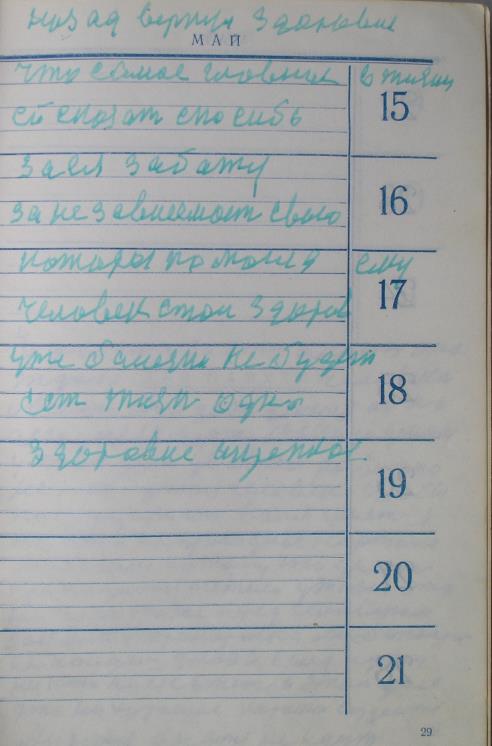 назад верни здоровие
МАЙ
что самое главное в жизни
15
ей сказат спосибь
за ея заботу
16
за не зависемост свою
котора помогла ему
17
человек стол здоров
уже болезни не будет
18
ест жизн одна
здоровие бесценное
19
20
21
29